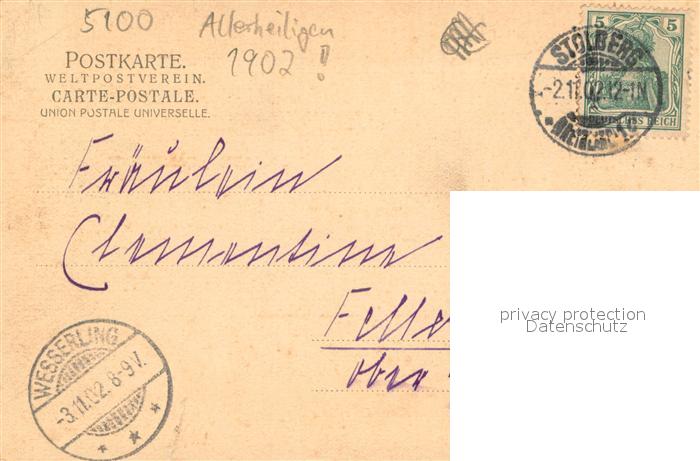 5100 Allerheiligen
1902!
POSTKARTE.
WELTPOSTVEREIN.
CARTE-POSTALE.
UNION POSTALE UNIVERSELLE.
5 5
DEUTSCHES REICH
STOLBERG
-2.11.02.12-1N.
Fräulein
Clementine
Felle
ober
privacy protection
Datenschutz
WESSERLING
-3.11.02. 8-9V.